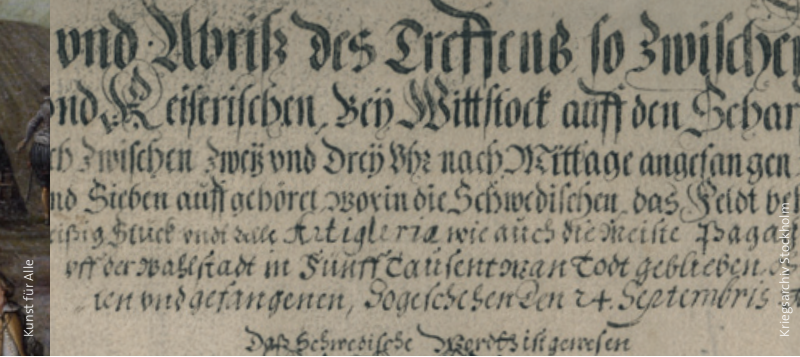 vnd Abriß des Treffens so Zwischen
vnd Keiserischen, Beÿ Wittstock auff den Schar
ch Zwischen Zweÿ vnd Dreÿ Vhr nach Mittage angefangen
nd Sieben auff gehöret, worin die Schwedischen, das Feldt be
eißig Stuck vndt alle Artigleria wie auch die Meiste Paga
vff der Wahlstadt in Funff Tausent man Todt geblieben.
ten vnd gefangenen, So geschehen den 24. Septembris
Daß Schwedische Wordt ist gewesen
Kunst für Alle
Kriegsarchiv Stockholm